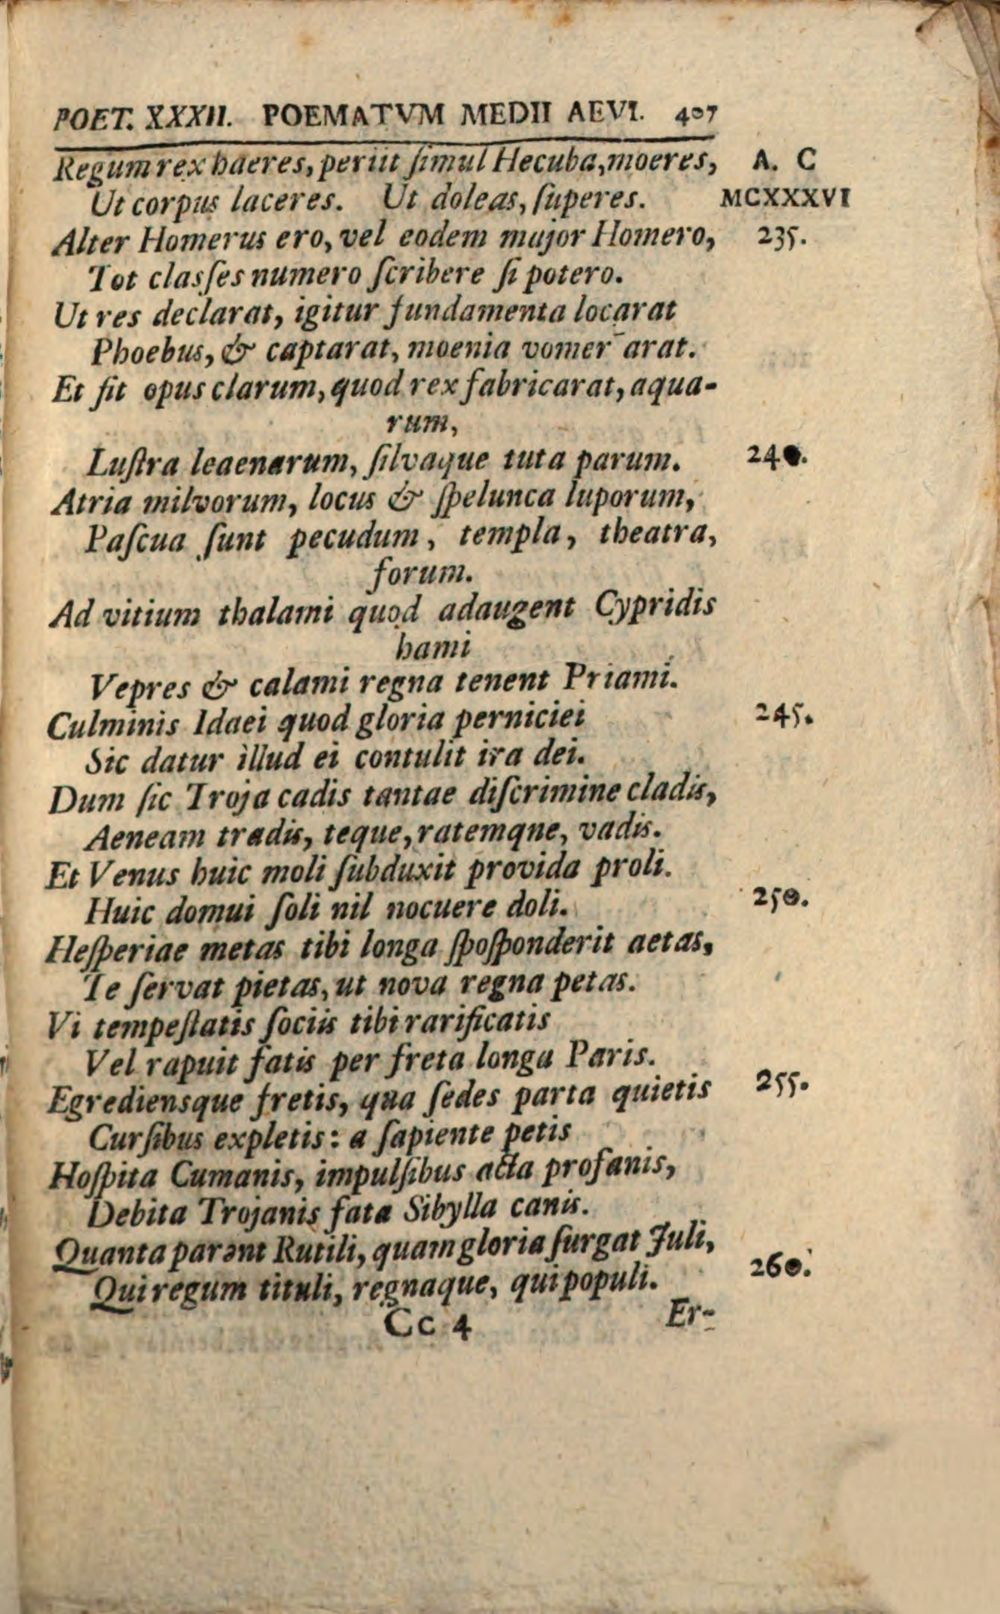 POET. XXXII. POEMATVM MEDII AEVI. 407
Regum rex haeres, periit ſimul Hecuba, moeres, A. C
Ut corpus laceres. Ut doleas, ſuperes. MCXXXVI
Alter Homerus ero, vel eodem major Homero, 235.
Tot clasſes numero ſcribere ſi potero.
Ut res declarat, igitur fundamenta locarat
Phoebus, & captarat, moenia vomer arat.
Et fit opus clarum, quod rex fabricarat, aqua-
rum,
Luſtra leaenarum, ſilvaque tuta parum. 240.
Atria milvorum, locus & ſpelunca luporum,
Paſcua ſunt pecudum, templa, theatra,
forum.
Ad vitium thalami quod adaugent Cypridis
hami
Vepres & calami regna tenent Priami.
Culminis Idaei quod gloria perniciei 245.
Sic datur illud ei contulit ira dei.
Dum ſic Troja cadis tantae diſcrimine cladis,
Aeneam tradis, teque, ratemqne, vadis.
Et Venus huic moli ſubduxit provida proli.
Huic domui ſoli nil nocuere doli. 250.
Heſperiae metas tibi longa ſpoſponderit aetas,
Te ſervat pietas, ut nova regna petas.
Vi tempeſtatis ſociis tibi rarificatis
Vel rapuit fatis per freta longa Paris.
Egrediensque fretis, qua ſedes parta quietis 255.
Curſibus expletis: a ſapiente petis
Hoſpita Cumanis, impulſibus acta profanis,
Debita Trojanis fata Sibylla canis.
Quanta parant Rutili, quam gloria ſurgat Juli,
Qui regum tituli, regnaque, qui populi. 260.
Cc 4 Er-